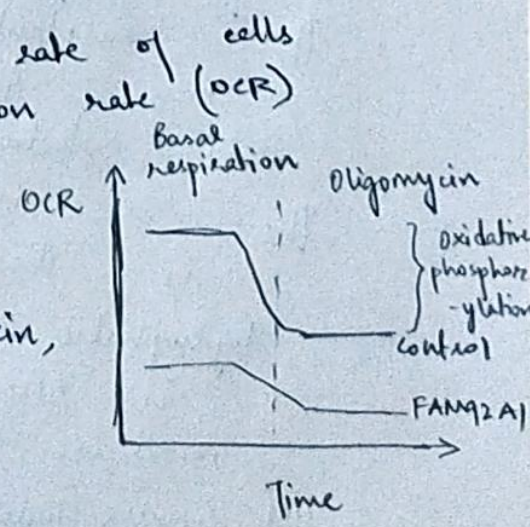 rate of cells
on rate (OCR)
Basal
respiration
Oligomycin
OCR
Oxidative
phosphor
-ylation
in,
Control
FAM92A1
Time